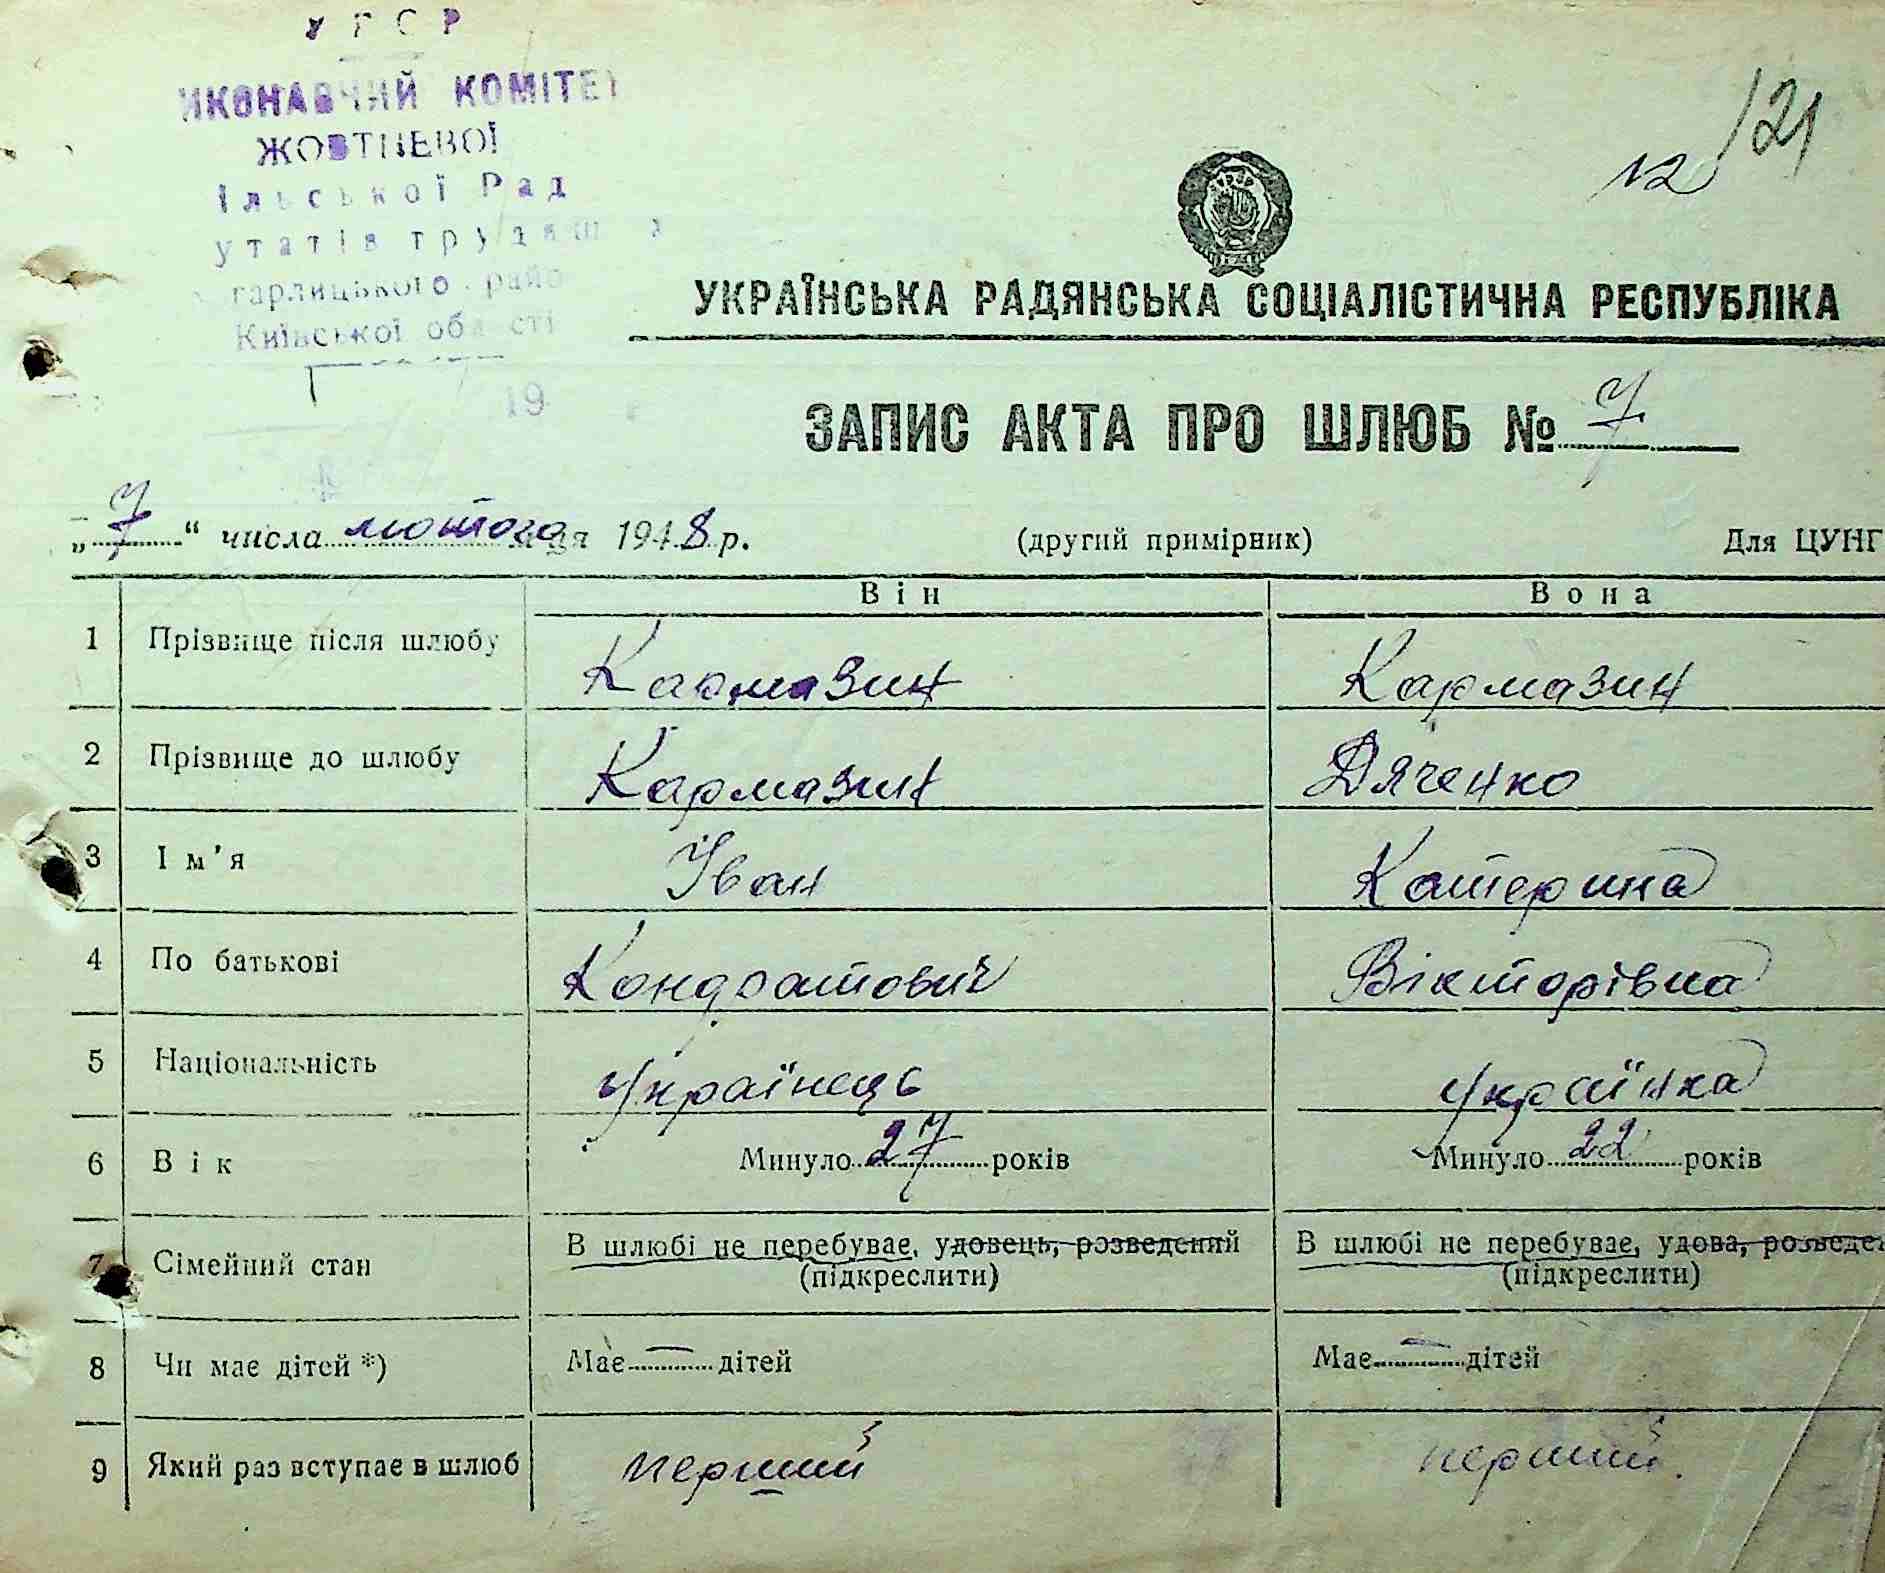 У Р С Р
ИКОНАВЧИЙ КОМІТЕТ
ЖОВТНЕВОЇ
ільської Рад
утатів трудящ
гарлицького райо
Київської області
19
12
121
УКРАЇНСЬКА РАДЯНСЬКА СОЦІАЛІСТИЧНА РЕСПУБЛІКА
ЗАПИС АКТА ПРО ШЛЮБ № 7
„7“ числа лютого м-ця 1948 р. (другий примірник) Для ЦУНГ
Він Вона
1 Прізвище після шлюбу Кармазин Кармазин
2 Прізвище до шлюбу Кармазин Дяченко
3 Ім’я Іван Катерина
4 По батькові Кондратович Вікторівна
5 Національність Українець Українка
6 Вік Минуло 27 років Минуло 22 років
7 Сімейний стан В шлюбі не перебуває, удовець, розведений В шлюбі не перебуває, удова, розведе
(підкреслити) (підкреслити)
8 Чи має дітей *) Має — дітей Має — дітей
9 Який раз вступає в шлюб перший перший.